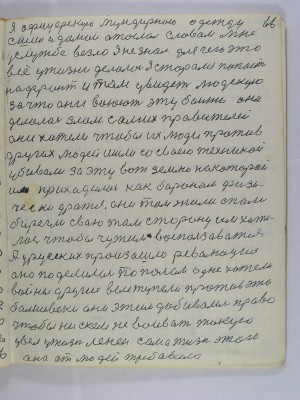 Я офицерскую мундирною одежду 66
снял и домой отослал словам мне
служба везло я незнал для чего это
всё у жизни делолся я старалш попаст
на фронт и там увидет людскую
за что они воюют эту войну они
делолся злом самих правителей
они хотели чтобы их люди против
других людей ишли со своею техникой
убивали за эту вот землю на которой
им приходилися как баронам физи-
чески дратся, они там жили спали
берегли своа этом сторону им хоте-
лось чтобы чужим воспользоватся
Я у русских произашло революция
она поделилась пополам одне хотели
войны другие выступали против эты
большевеки они этим добивалися право
чтобы ни с кем не воиват такую
цель у жизни ленен сама жизн этого
она от людей требовала